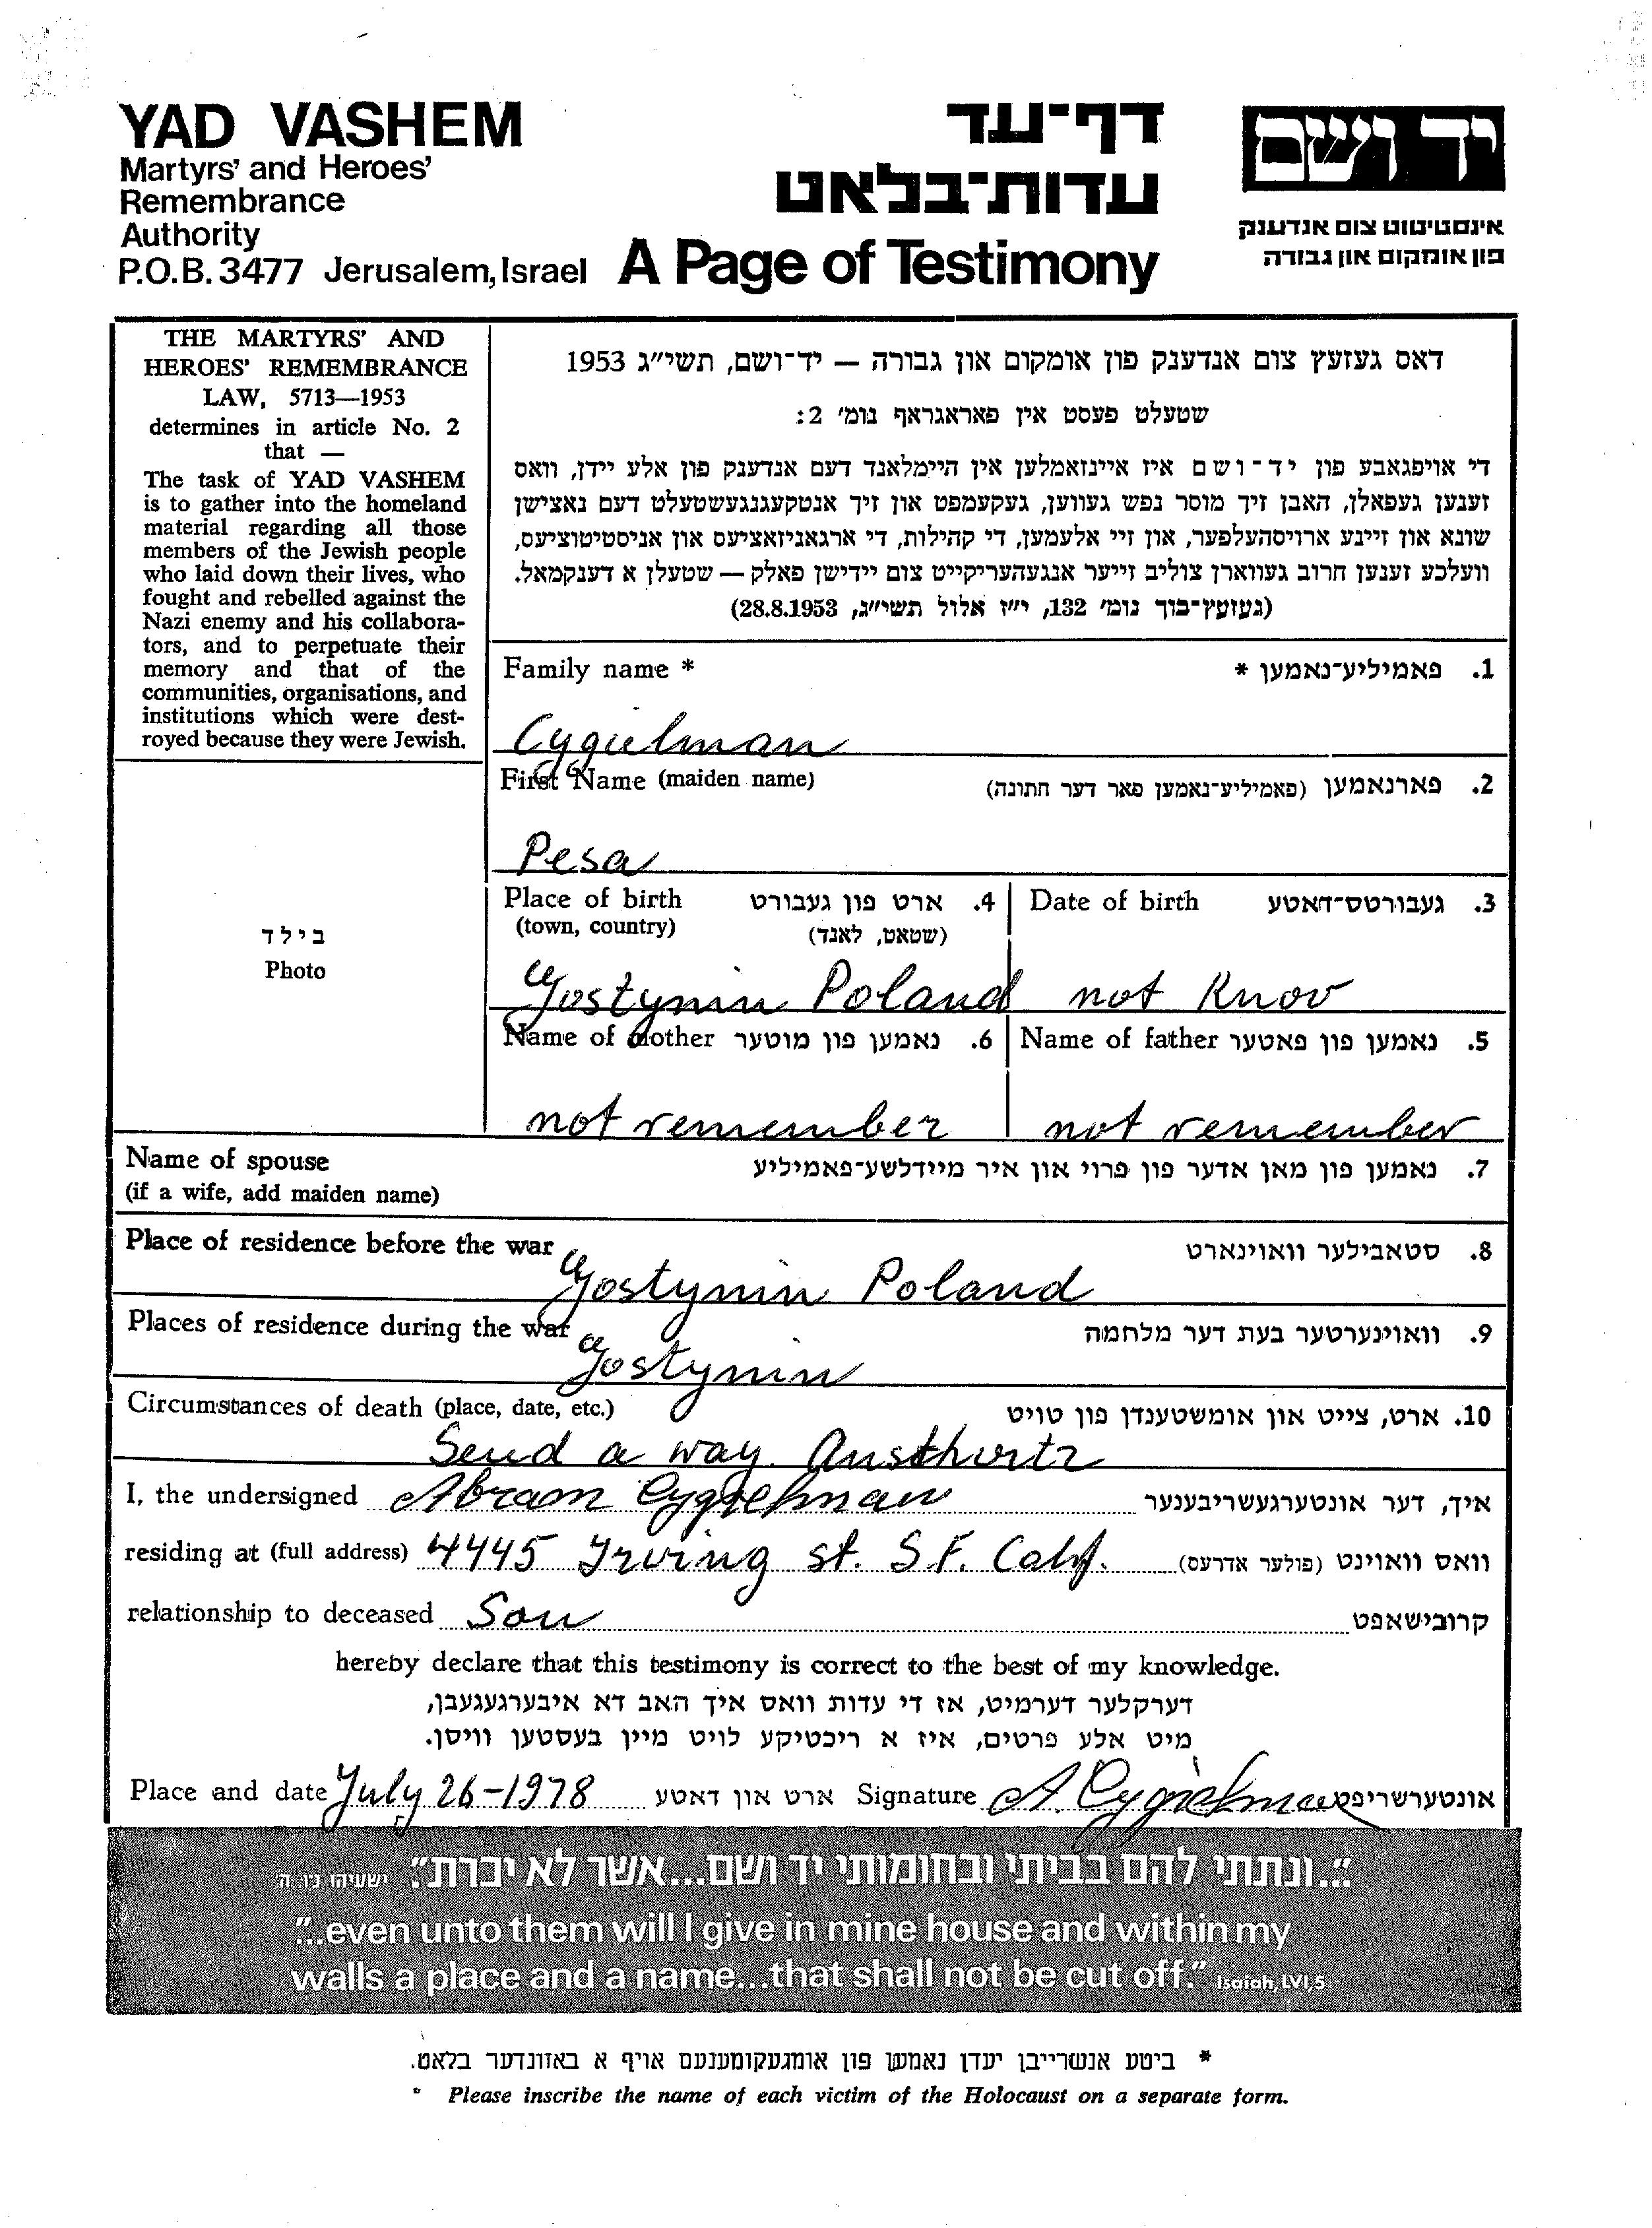 YAD VASHEM
Martyrs' and Heroes'
Remembrance
Authority
P.O.B. 3477 Jerusalem, Israel
דף-עד
עדות-בלאט
A Page of Testimony
יד ושם
אינסטיטוט צום אנדענק
פון אומקום און גבורה
THE MARTYRS' AND
HEROES' REMEMBRANCE
LAW, 5713—1953
determines in article No. 2
that —
The task of YAD VASHEM
is to gather into the homeland
material regarding all those
members of the Jewish people
who laid down their lives, who
fought and rebelled against the
Nazi enemy and his collabora-
tors, and to perpetuate their
memory and that of the
communities, organisations, and
institutions which were dest-
royed because they were Jewish.
דאס געזעץ צום אנדענק פון אומקום און גבורה — יד-ושם, תשי"ג 1953
שטעלט פעסט אין פאראגראף נומ' 2:
די אויפגאבע פון יד-ושם איז איינזאמלען אין היימלאנד דעם אנדענק פון אלע יידן, וואס
זענען געפאלן, האבן זיך מוסר נפש געווען, געקעמפט און זיך אנטקעגנגעשטעלט דעם נאצישן
שונא און זיינע ארויסהעלפער, און זיי אלעמען, די קהילות, די ארגאניזאציעס און אניסטיטוציעס,
וועלכע זענען חרוב געווארן צוליב זייער אנגעהעריקייט צום יידישן פאלק — שטעלן א דענקמאל.
(געזעץ-בוך נומ' 132, י"ז אלול תשי"ג, 28.8.1953)
Family name * פאמיליע-נאמען * .1
Cygielman
First Name (maiden name) פארנאמען (פאמיליע-נאמען פאר דער חתונה) .2
Pesa
Place of birth ארט פון געבורט .4 Date of birth געבורטס-דאטע .3
(town, country) (שטאט, לאנד)
Gostynin Poland not Knov
Name of mother נאמען פון מוטער .6 Name of father נאמען פון פאטער .5
not remember not remember
בילד
Photo
Name of spouse נאמען פון מאן אדער פון פרוי און איר מיידלשע-פאמיליע .7
(if a wife, add maiden name)
Place of residence before the war סטאבילער וואוינארט .8
Gostynin Poland
Places of residence during the war וואוינערטער בעת דער מלחמה .9
Gostynin
Circumstances of death (place, date, etc.) ארט, צייט און אומשטענדן פון טויט .10
Send a way Austhvitz
I, the undersigned Abram Cygielman איך, דער אונטערגעשריבענער
residing at (full address) 4445 Irving st. S.F. Calif. וואס וואוינט (פולער אדרעס)
relationship to deceased Son קרובישאפט
hereby declare that this testimony is correct to the best of my knowledge.
דערקלער דערמיט, אז די עדות וואס איך האב דא איבערגעגעבן,
מיט אלע פרטים, איז א ריכטיקע לויט מיין בעסטען וויסן.
Place and date July 26-1978 ארט און דאטע Signature A. Cygielman אונטערשריפט
"...ונתתי להם בביתי ובחומותי יד ושם...אשר לא יכרת". ישעיהו נ"ו, ה'
"...even unto them will I give in mine house and within my
walls a place and a name...that shall not be cut off." Isaiah, LVI,5
* ביטע אנשרייבן יעדן נאמען פון אומגעקומענעם אויף א באזונדער בלאט.
* Please inscribe the name of each victim of the Holocaust on a separate form.